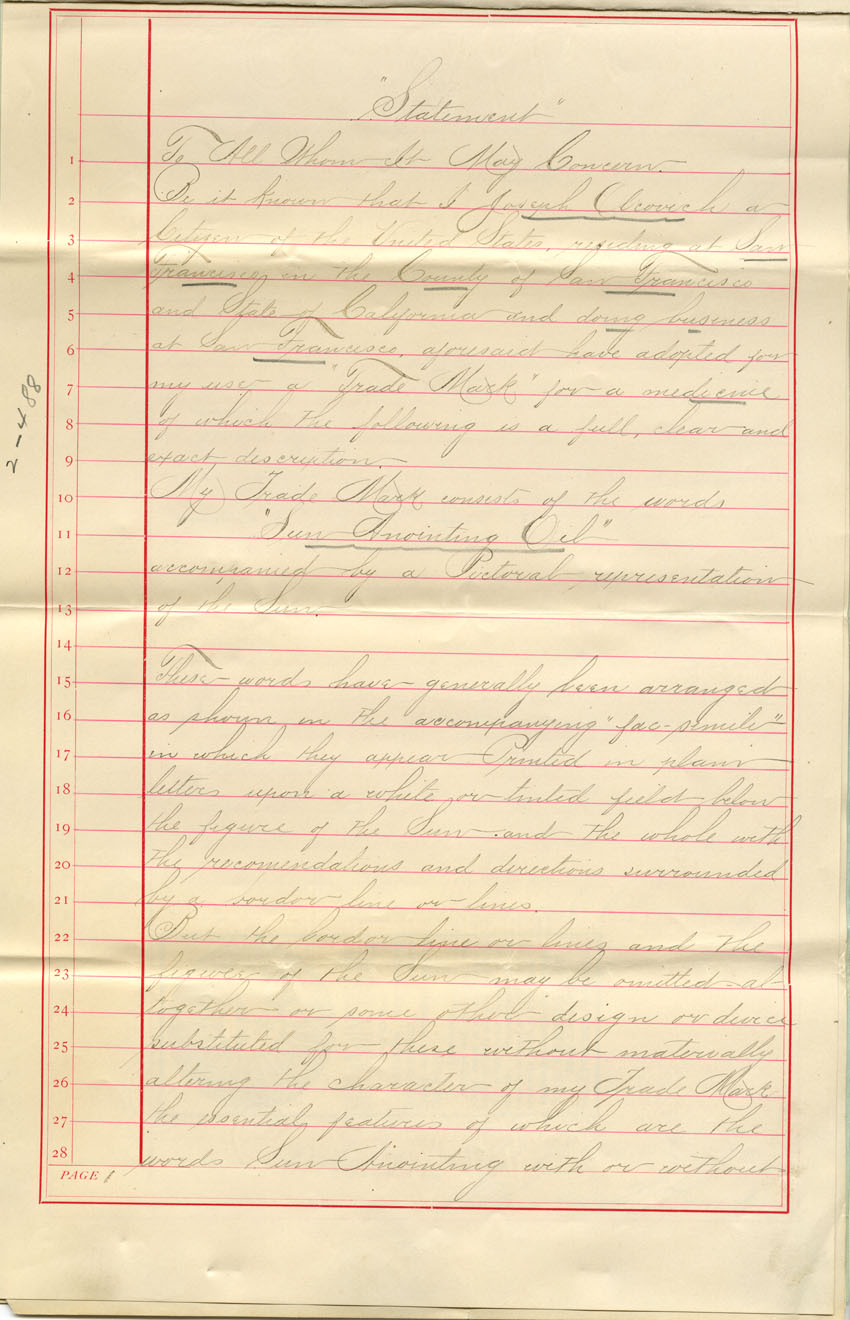 "Statement"
1 To All Whom It May Concern.
2 Be it known that I Joseph Alcovich a
3 Citizen of the United States, residing at San
4 Francisco in the County of San Francisco
5 and State of California and doing business
6 at San Francisco, aforesaid have adopted for
7 my use a "Trade Mark" for a medicine
8 of which the following is a full, clear and
9 exact description.
10 My Trade Mark consists of the words
11 "Sun Anointing Oil"
12 accompanied by a Pictoral representation
13 of the Sun.
14
15 These words have generally been arranged
16 as shown in the accompanying "fac-simile"
17 in which they appear Printed in plain
18 letters upon a white or tinted field below
19 the figure of the Sun and the whole with
20 the recomendations and directions surrounded
21 by a bordor line or lines.
22 But the bordor line or lines and the
23 figures of the Sun may be omitted al-
24 together or some other design or divice
25 substituted for these without materially
26 altering the character of my Trade Mark
27 the essential features of which are the
28 words Sun Anointing with or without
PAGE 1
2-488